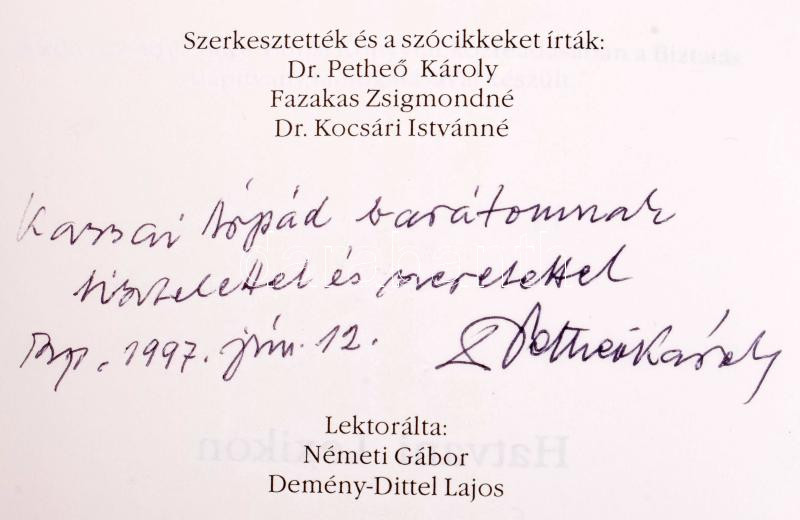 Szerkesztették és a szócikkeket írták:
Dr. Petheő Károly
Fazakas Zsigmondné
Dr. Kocsári Istvánné
Kassai Árpád barátomnak
tisztelettel és szeretettel
Bp. 1997. jún. 12.
Petheő Károly
Lektorálta:
Németi Gábor
Demény-Dittel Lajos